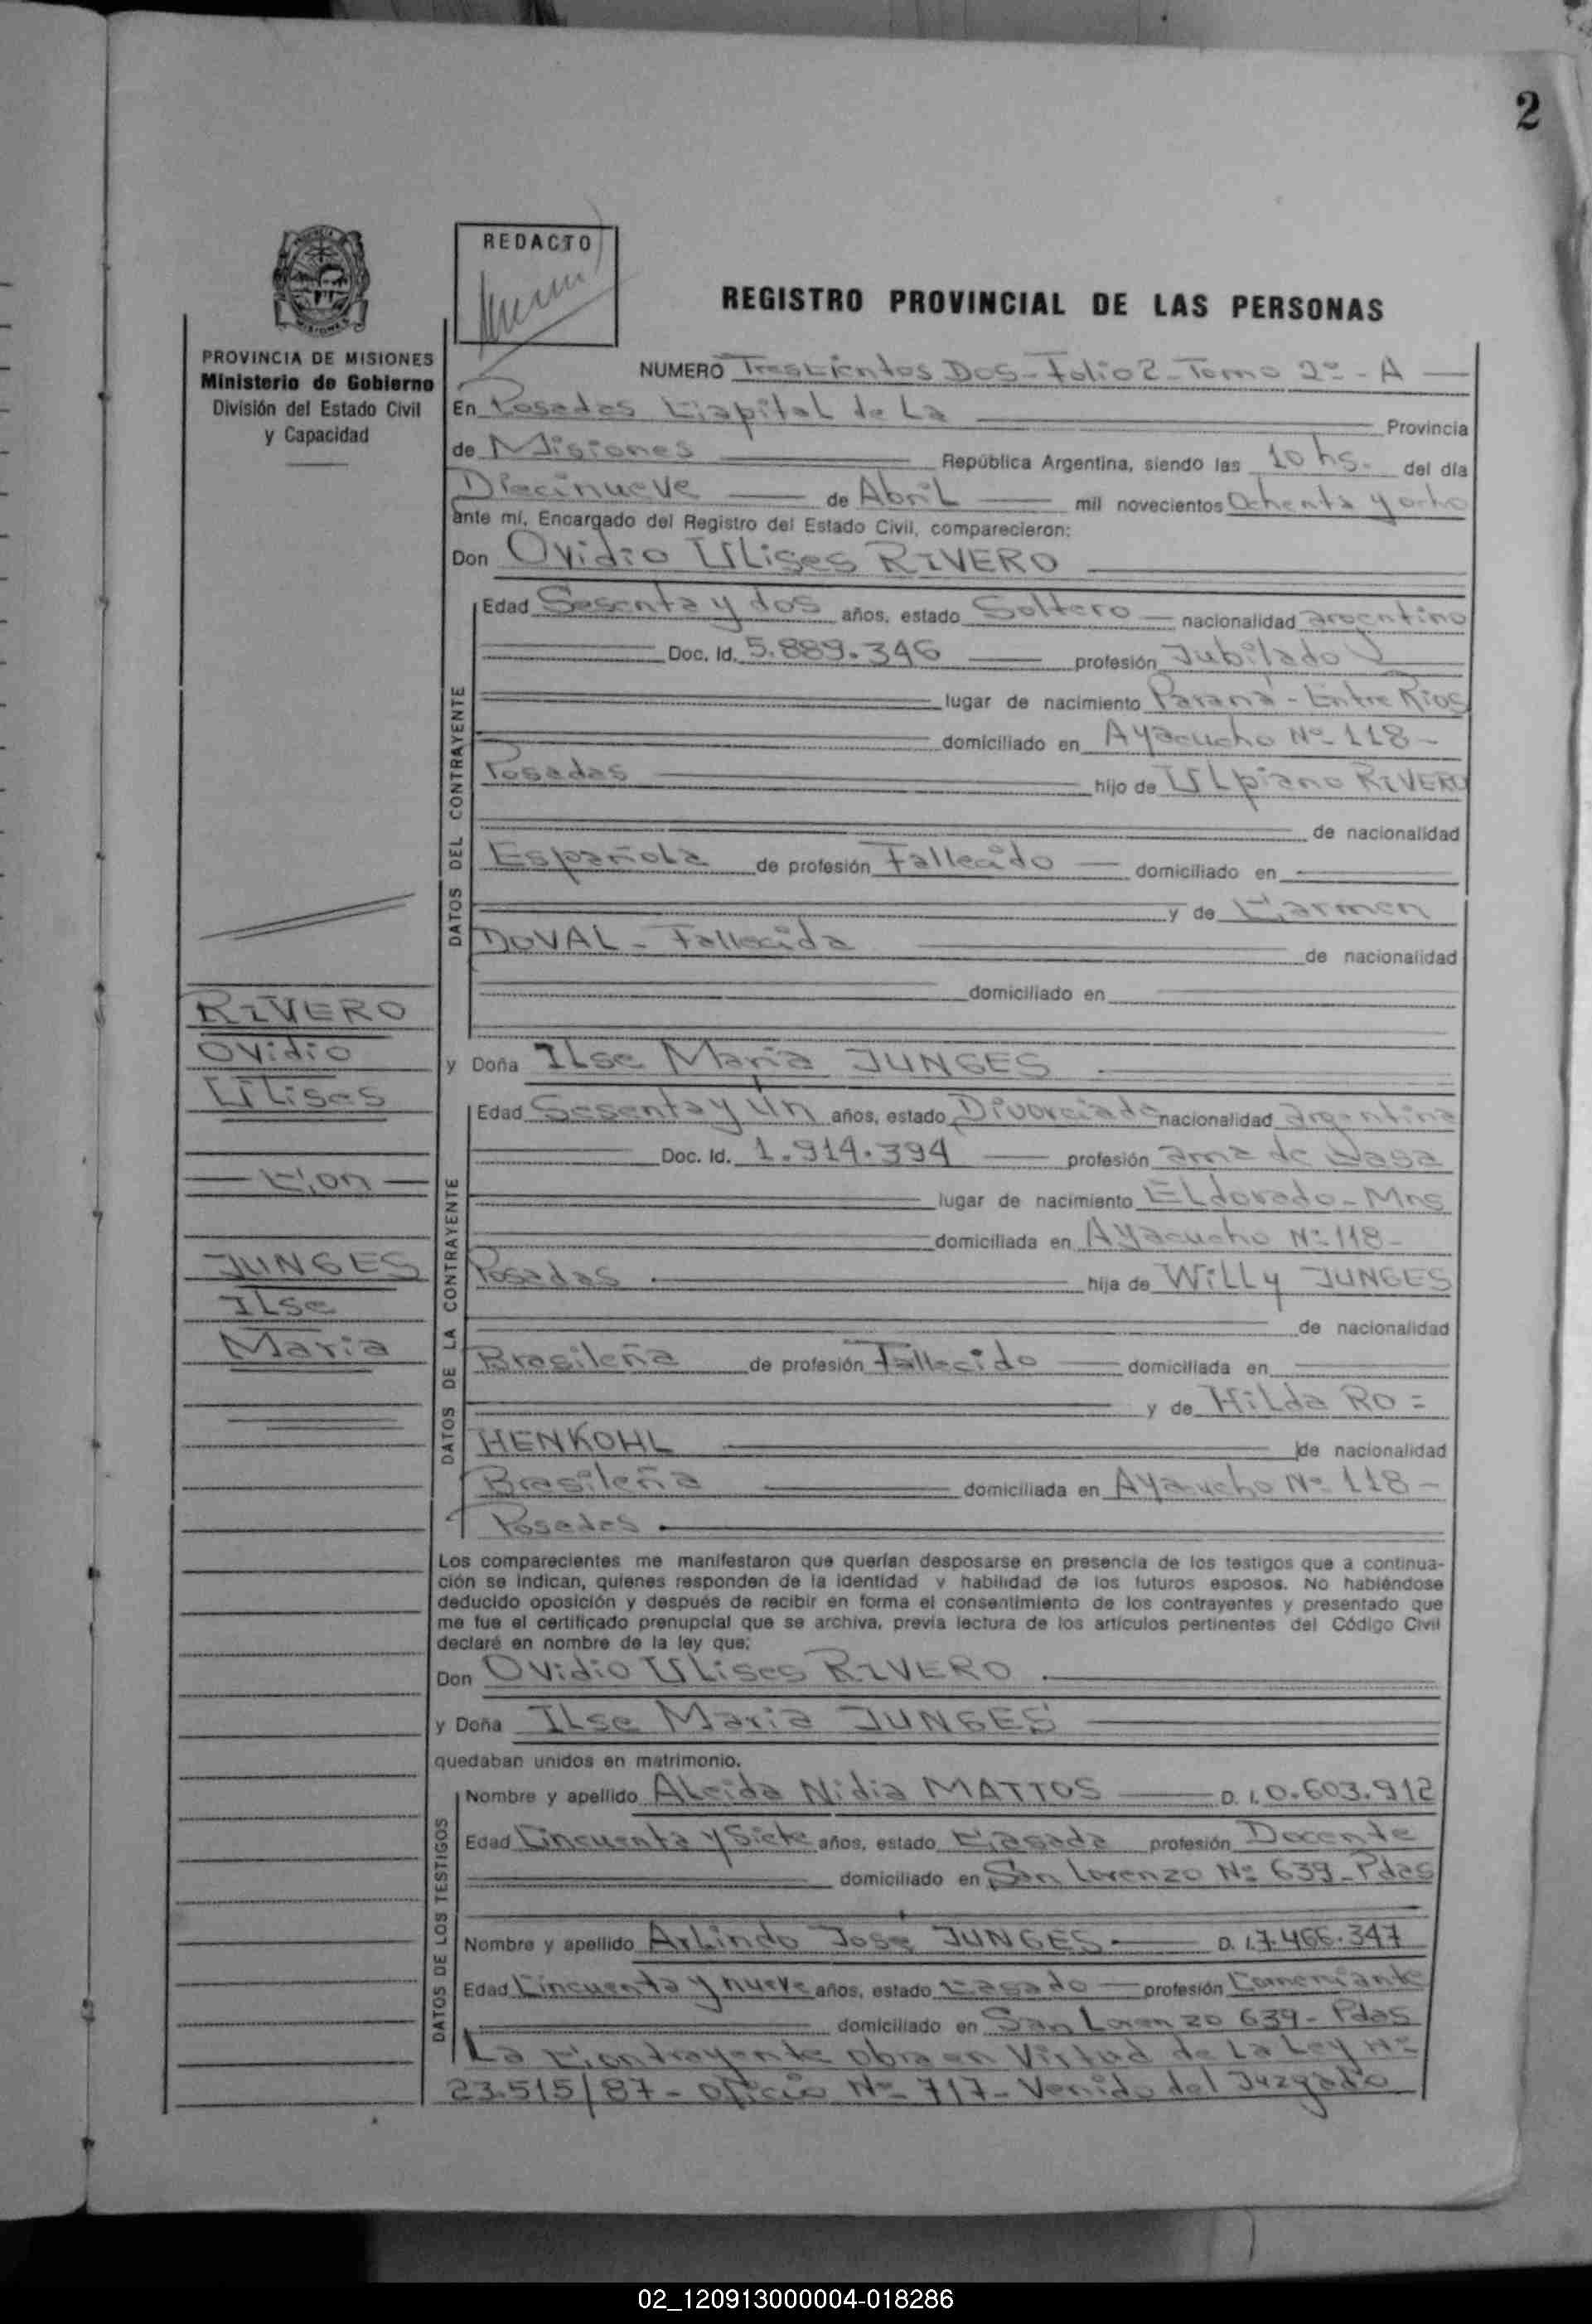 2
REDACTO
PROVINCIA DE MISIONES
Ministerio de Gobierno
División del Estado Civil
y Capacidad
REGISTRO PROVINCIAL DE LAS PERSONAS
NUMERO Trescientos Dos - Folio 2 - Tomo 2º - A
En Posadas Capital de La Provincia
de Misiones República Argentina, siendo las 10 hs. del día
Diecinueve de Abril mil novecientos Ochenta y ocho
ante mí, Encargado del Registro del Estado Civil, comparecieron:
Don Ovidio Ulises RIVERO
DATOS DEL CONTRAYENTE
Edad Sesenta y dos años, estado Soltero nacionalidad argentino
Doc. Id. 5.889.346 profesión Jubilado
lugar de nacimiento Paraná - Entre Rios
domiciliado en Ayacucho Nº 118 -
Posadas hijo de Ulpiano RIVERO
de nacionalidad
Española de profesión Fallecido domiciliado en
y de Carmen
DOVAL - Fallecida de nacionalidad
domiciliado en
RIVERO
Ovidio
Ulises
Con
JUNGES
Ilse
Maria
y Doña Ilse Maria JUNGES
DATOS DE LA CONTRAYENTE
Edad Sesenta y Un años, estado Divorciada nacionalidad argentina
Doc. Id. 1.914.394 profesión ama de Casa
lugar de nacimiento Eldorado - Mns
domiciliada en Ayacucho Nº 118 -
Posadas hija de Willy JUNGES
de nacionalidad
Brasileña de profesión Fallecido domiciliada en
y de Hilda RO =
HENKOHL de nacionalidad
Brasileña domiciliada en Ayacucho Nº 118 -
Posadas
Los comparecientes me manifestaron que querían desposarse en presencia de los testigos que a continua-
ción se indican, quienes responden de la identidad y habilidad de los futuros esposos. No habiéndose
deducido oposición y después de recibir en forma el consentimiento de los contrayentes y presentado que
me fue el certificado prenupcial que se archiva, previa lectura de los artículos pertinentes del Código Civil
declaré en nombre de la ley que:
Don Ovidio Ulises RIVERO
y Doña Ilse Maria JUNGES
quedaban unidos en matrimonio.
DATOS DE LOS TESTIGOS
Nombre y apellido Alcida Nidia MATTOS D. I. 0.603.912
Edad Cincuenta y Siete años, estado Casada profesión Docente
domiciliado en San Lorenzo Nº 639 - Pdas
Nombre y apellido Arlindo José JUNGES D. I. 7.466.347
Edad Cincuenta y nueve años, estado Casado profesión Comerciante
domiciliado en San Lorenzo 639 - Pdas
La Contrayente obra en Virtud de La Ley Nº
23.515/87 - oficio Nº 717 - Venido del Juzgado
02_120913000004-018286